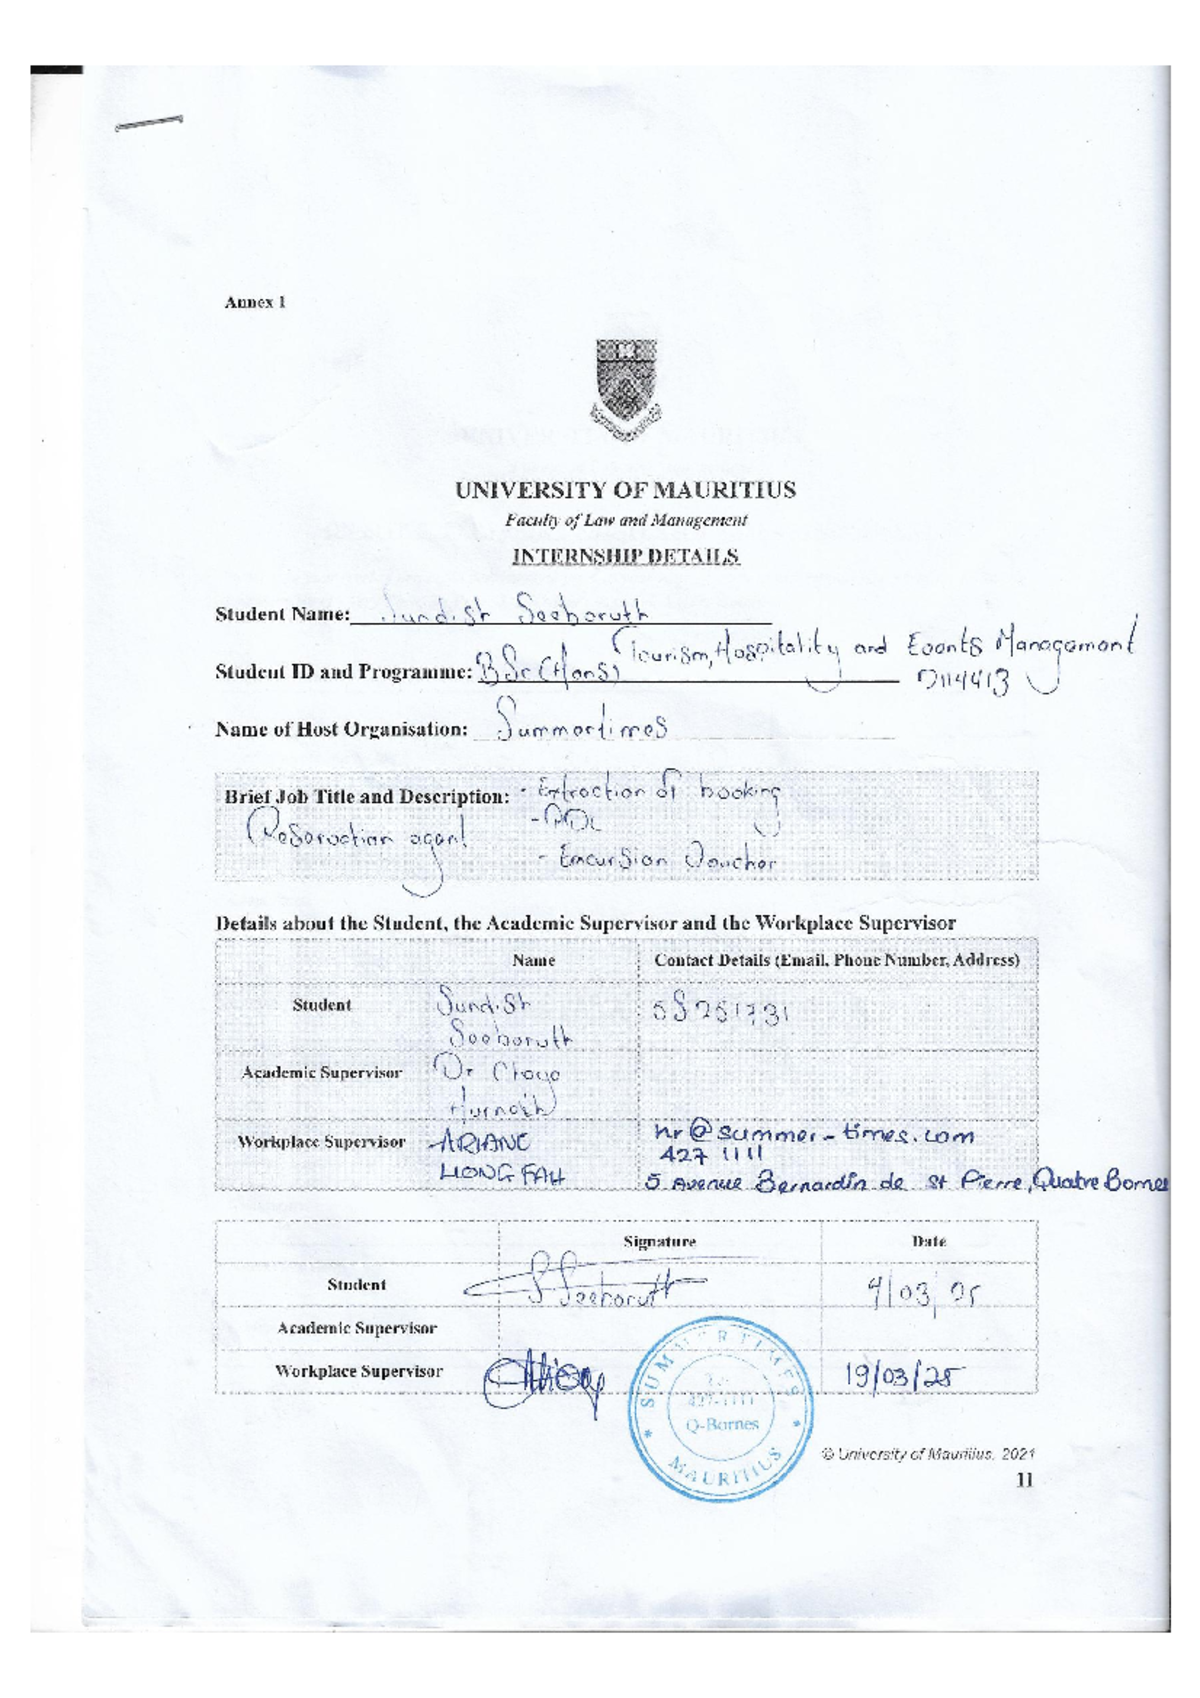 Annex 1
UNIVERSITY OF MAURITIUS
Faculty of Law and Management
INTERNSHIP DETAILS
Student Name: Sundish Seeboruth
Student ID and Programme: BSc (Hons) Tourism, Hospitality and Events Management
Name of Host Organisation: Summertimes
Brief Job Title and Description: - Extraction of booking
Reservation agent
- Excursion Voucher
Details about the Student, the Academic Supervisor and the Workplace Supervisor
Name Contact Details (Email, Phone Number, Address)
Student Sundish
Seeboruth
Academic Supervisor Dr
Workplace Supervisor ARIANE hr@summer-times.com
427 1111
LIONG FAH 5 Avenue Bernardin de St Pierre, Quatre Bornes
Signature Date
Student S Seeboruth
Academic Supervisor
Workplace Supervisor 19/03/25
SUMMER TIMES
427-1111
Q-Bornes
MAURITIUS
© University of Mauritius, 2021
11